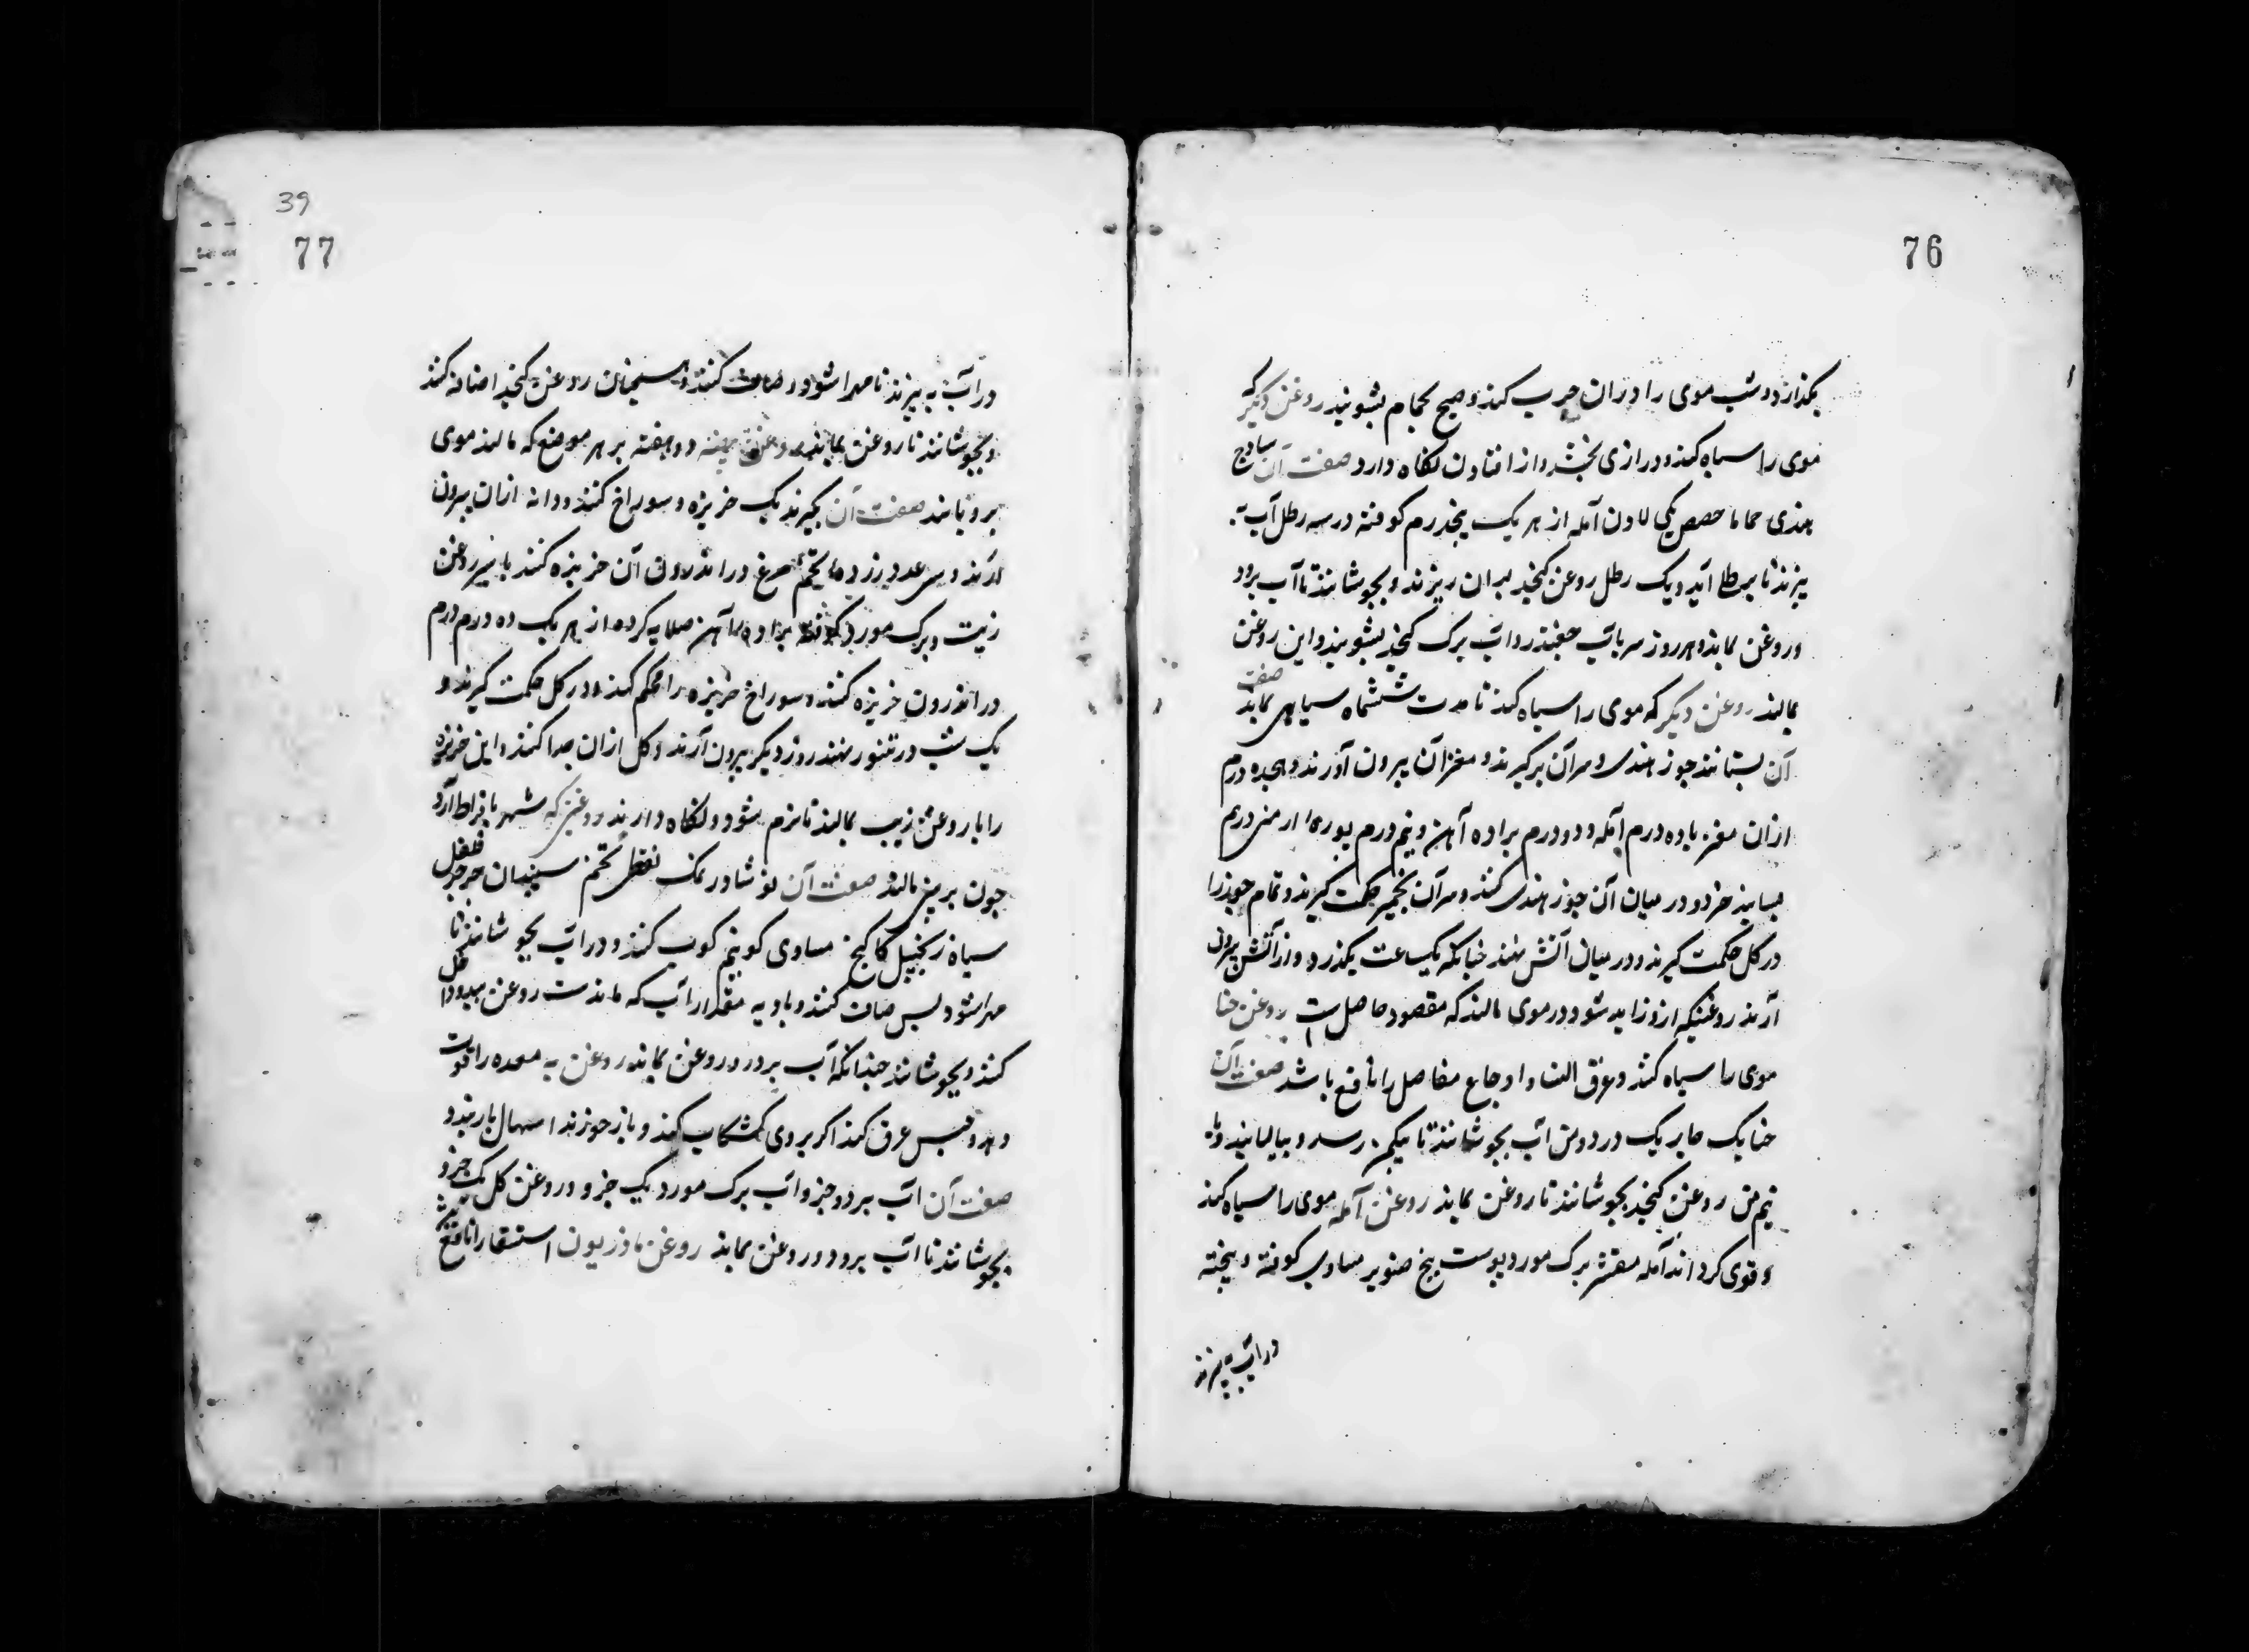 76
بکذارد و شب موی را دران چرب کنند و صبح بحمام بشویند روغن دیکر که
موی را سیاه کند و درازی بخشد و از افتادن نکاه دارد صفت آن ساذج
هندی حماما حصص مکی لادن آمله از هر یک پنجدرم کوفته در سه رطل آب به
پزند تا برطل آید و یک رطل روغن کنجد بران ریزند و بجوشانند تا آب برود
و روغن بماند و هر روز سر بآب چغندر و آب برک کنجد بشویند و این روغن
بمالند روغن دیکر که موی را سیاه کند تا مدت ششماه سیاهی بماند صفت
آن بستانند جوز هندی و سر آن برکیرند و مغز آن بیرون آورند و هجده درم
ازان مغز با ده درم آمله و دو درم براده آهن و نیم درم بوره ارمنی درهم
بسایند خرد و در میان آن جوز هندی کنند و سر آن بخمیر حکمت کیرند و تمام جوز را
در کل حکمت کیرند و در میان آتش نهند چنانکه یکساعت بکذرد و از آتش بیرون
آرند روغنیکه ازو زاید شود در موی مالند که مقصود حاصل است روغن حنا
موی را سیاه کند و عرق النسا و اوجاع مفاصل را نافع باشد صفت آن
حنا یک چاریک در دو من آب بجوشانند تا بیکمن رسد و بپالایند و با
نیم من روغن کنجد بجوشانند تا روغن بماند روغن آمله موی را سیاه کند
و قوی کرداند آمله مقشر برک مورد پوست بیخ صنوبر مساوی کوفته و پخته
در آب به پزند
39
77
در آب به پزند تا مهرا شود و صاف کنند و همچنان روغن کنجد اضافه کنند
و بجوشانند تا روغن بماند روغن بیضه دو هفته بر هر موضع که مالند موی
برویاند صفت آن بکیرند یک خربزه و سوراخ کنند و دانه ازان بیرون
آرند و سی عدد زرده تخم مرغ در اندرون آن خربزه کنند با سیر روغن
زیت و برک مورد کوفته براده آهن صلایه کرده از هر یک ده درم درم
در اندرون خربزه کنند و سوراخ خربزه را محکم کنند و در کل حکمت کیرند و
یک شب در تنور نهند روز دیکر بیرون آرند و کل ازان جدا کنند و این خربزه
را با روغن زیب بمالند تا نرم شود و نکاه دارند روغنی که شهر بافراط آرد
چون بر مالند صفت آن نوشادر نمک نفطی تخم سپندان جرجیر فلفل
سیاه زنجبیل کاکنج مساوی کو نیم کوب کنند و در آب بجوشانند تا
مهرا شود پس صاف کنند و با دو به مقدار آب که مانده است روغن
کنند و بجوشانند چندانکه آب برود و روغن بماند روغن به معده را قوت
دهد و حبس عرق کند اکر بر روی کشکاب کنند و باز خورند اسهال باز بندد
صفت آن آب به دو جزو آب برک مورد یک جزو و روغن کل یک جزو
بجوشانند تا آب برود و روغن بماند روغن ماذریون استسقا را نافع